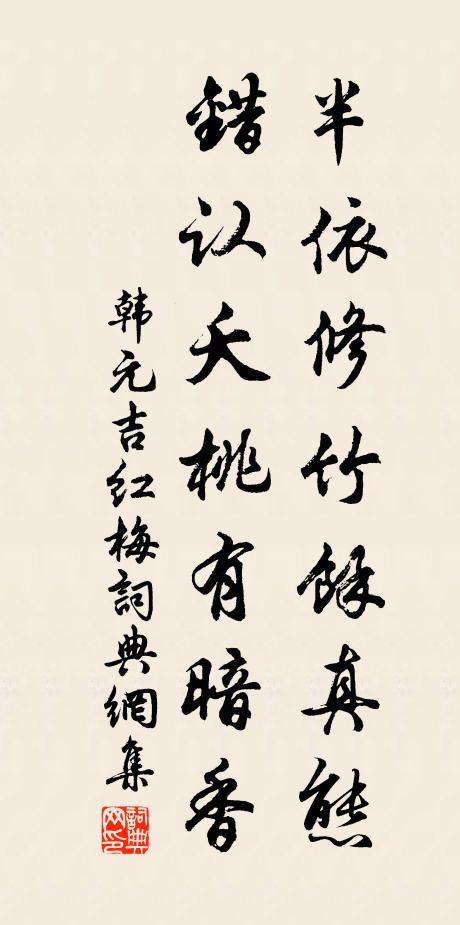 半依修竹餘真態
錯认夭桃有暗香
韩元吉红梅詞典網集
詞典
网印